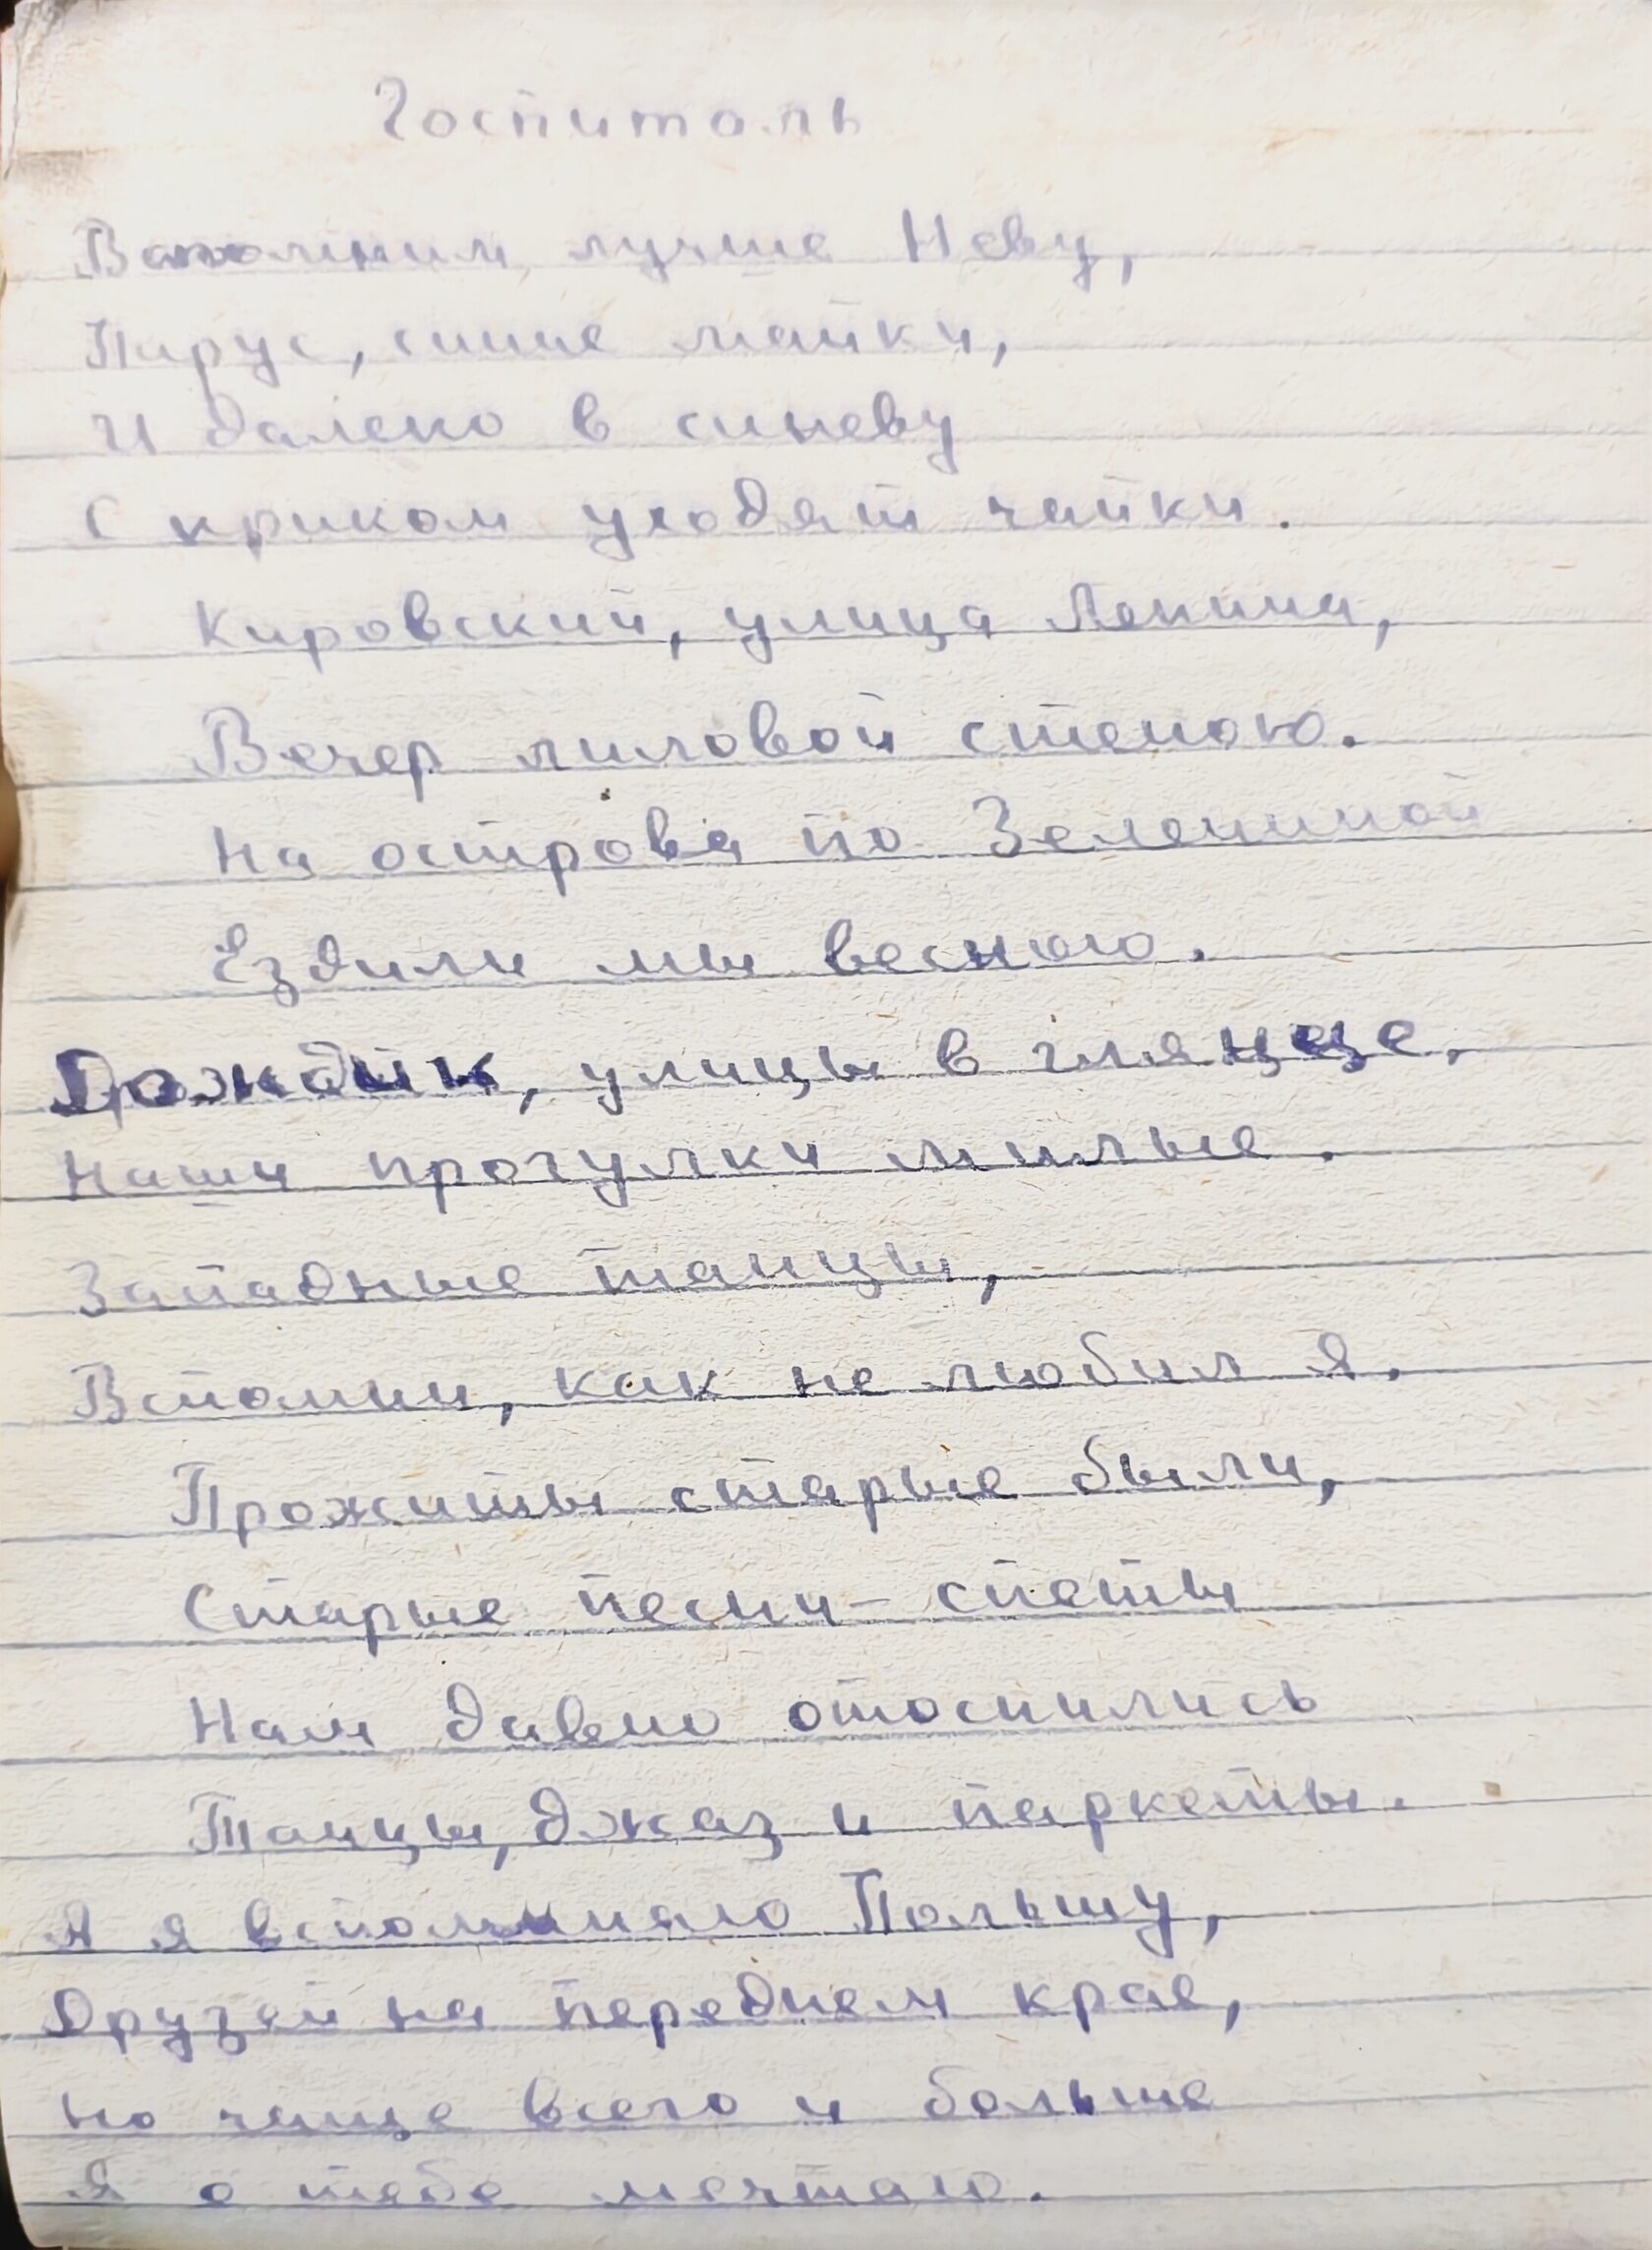 Госпиталь
Вспомним лучше Неву,
Парус, синие майки,
И далеко в синеву
С криком уходят чайки.
Кировский, улица Ленина,
Вечер лиловой стеною.
На острова по Зелениной
Ездили мы весною.
Дождик, улицы в глянце,
Наши прогулки милые.
Западные танцы,
Вспомни, как не любил я.
Прожиты старые были,
Старые песни - спеты
Нам давно отоснились
Танцы, джаз и паркеты.
А я вспоминаю Польшу,
Друзей на переднем крае,
Но чаще всего и больше
Я о тебе мечтаю.